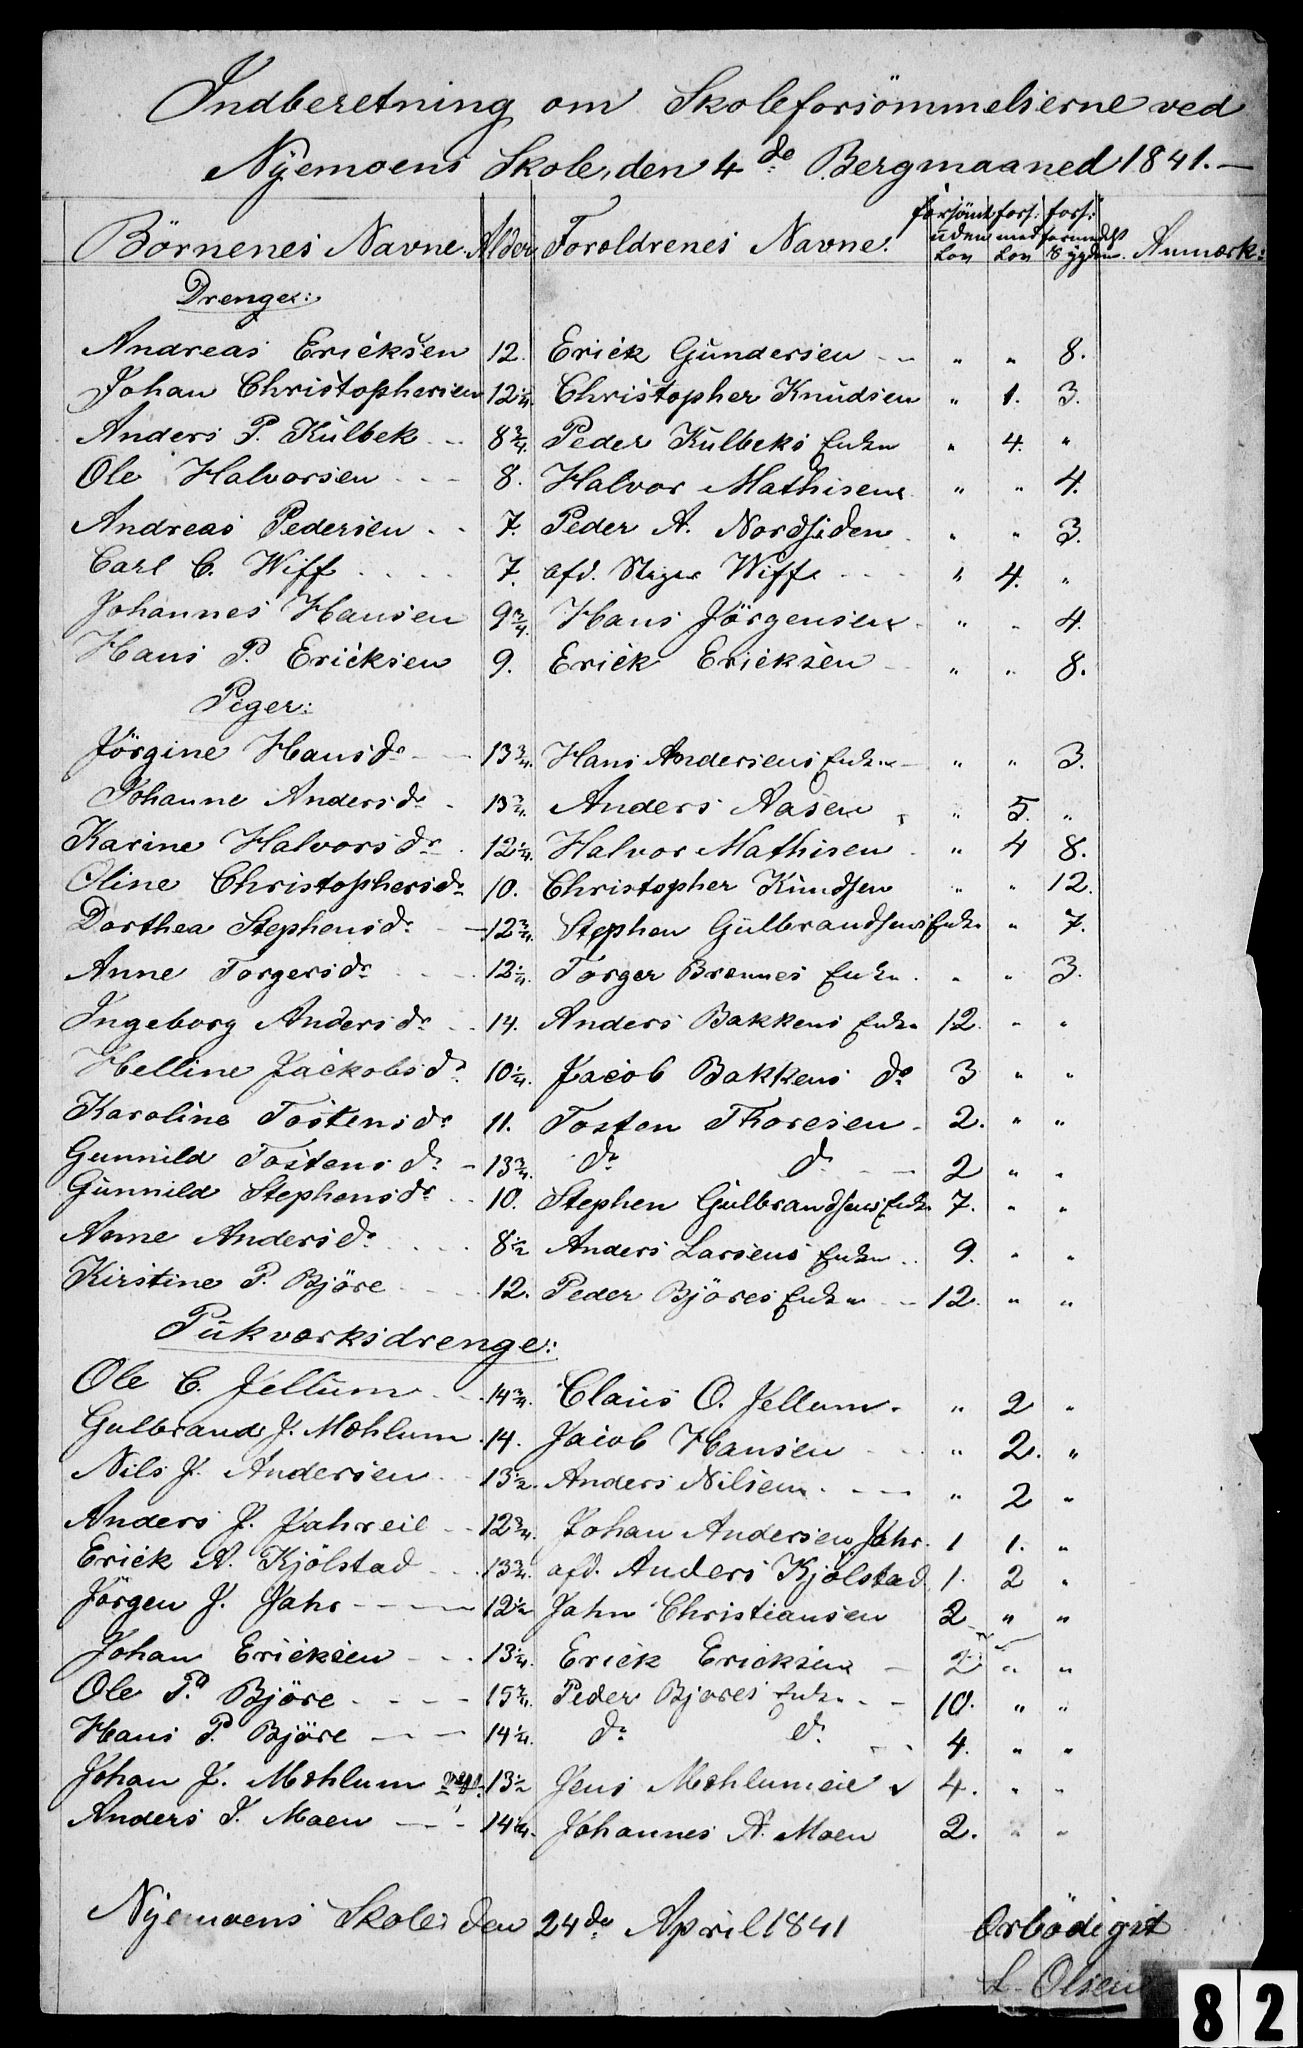 Indberetning om Skoleforsömmelserne ved
Nyemoens Skole, den 4de Bergmaaned 1841. —
Börnenes Navne. Alder Foreldrenes Navne. forsömt uden Lov fors: med Lov fors: formedelst Sygdom. Anmærk:
Drenge:
Andreas Ericksen 12. Erick Gundersen " " 8.
Johan Christophersen 12 1/4. Christopher Knudsen " 1. 3.
Anders P. Kulbek 8 3/4. Peder Kulbeks Enke " 4. "
Ole Halvorsen 8. Halvor Mathisen " " 4.
Andreas Pedersen 7. Peder A. Nordsiden " " 3.
Carl C. Wiff 7. afd. Steger Wiff " 4. "
Johannes Hansen 9 3/4. Hans Jörgensen " " 4.
Hans P. Ericksen 9. Erick Ericksen " " 8.
Piger:
Jörgine Hansdr 13 3/4. Hans Andersens Enke " " 3.
Johanne Andersdr 13 3/4. Anders Aasen " 5. "
Karine Halvorsdr 12 1/4. Halvor Mathisen " 4 8.
Oline Christophersdr 10. Christopher Knudsen " " 12.
Dorthea Stephensdr 12 3/4. Stephen Gulbrandsens Enke " 7.
Anne Torgersdr 12 1/4. Torger Brennes Enke " " 3.
Ingeborg Andersdr 14. Anders Bakkens Enke 12. " "
Helline Jackobsdr 10 1/4. Jacob Bakkens do 3 " "
Karoline Tostensdr 11. Tosten Thoresen 2. " "
Gunnild Tostensdr 13 3/4. do do 2 " "
Gunnild Stephensdr 10. Stephen Gulbrandsens Enke 7. " "
Anne Andersdr 8 1/2 Anders Larsens Enke 9. " "
Kirstine P. Björe 12. Peder Björes Enke 12. " "
Pukværksdrenge:
Ole C. Jellum 14 3/4. Claus O. Jellum " 2 "
Gulbrand J. Mæhlum 14. Jacob Hansen " 2. "
Nils J. Andersen 13 1/2. Anders Nilsen " 2 "
Anders J. Jahreie 12 3/4. Johan Andersen Jahr. 1 1. "
Erick A. Kjölstad 13 3/4. afd. Anders Kjölstad 1. 2 "
Jörgen J. Jahr 12 1/2 Jahn Christiansen 2 " "
Johan Ericksen 13 1/4. Erick Ericksen 2 " "
Ole P. Björe 15 3/4. Peder Björes Enke 10. " "
Hans P. Björe 14 1/4. do do 4. " "
Johan J. Mæhlum 13 1/2 Jens Mæhlumeie 4. " "
Anders J. Moen 14 1/4. Johannes A. Moen 2. " "
Nyemoens Skole, den 24de April 1841 Ærbödigst
L. Olsen
82